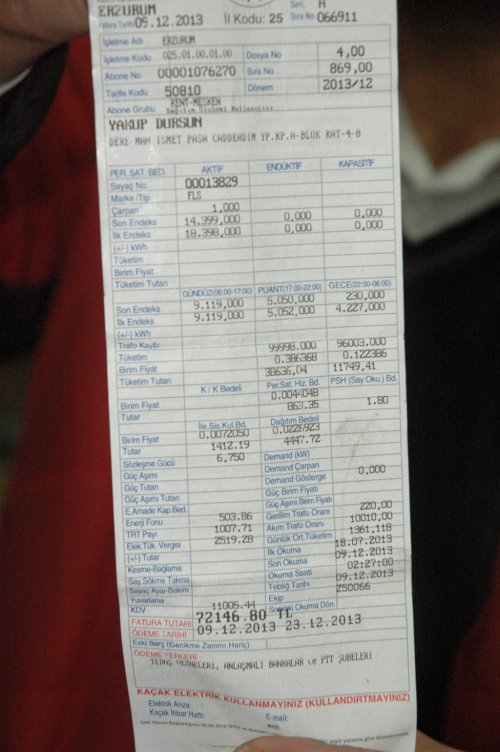 ERZURUM Seri, H
Fatura Tarihi 09.12.2013 İl Kodu: 25 Sıra No 066911
İşletme Adı ERZURUM
İşletme Kodu 025.01.00.01.00 Dosya No 4,00
Abone No 00001076270 Sıra No 869,00
Tarife Kodu 50810 Dönem 2013/12
Abone Grubu KENT-MESKEN
Dağıtım Sistemi Kullanıcısı
YAKUP DURSUN
DERE MAH İSMET PASA CADDEADIM YP.KP.A-BLOK KAT-4-8
PER. SAT. BED. AKTİF ENDÜKTİF KAPASİTİF
Sayaç No. 00013829
Marka /Tip FLS
Çarpan 1,000
Son Endeks 14.399,000 0,000 0,000
İlk Endeks 18.398,000 0,000 0,000
(+/-) kWh
Tüketim
Birim Fiyat
Tüketim Tutarı
GÜNDÜZ(06:00-17:00) PUANT(17:00-22:00) GECE(22:00-06:00)
Son Endeks 9.119,000 5.050,000 230,000
İlk Endeks 9.119,000 5.052,000 4.227,000
(+/-) kWh
Trafo Kaybı
Tüketim 99998.000 96003.000
Birim Fiyat 0.386368 0.122386
Tüketim Tutarı 38636,04 11749,41
K / K Bedeli Per.Sat. Hiz. Bd. PSH (Say.Oku.) Bd.
Birim Fiyat 0.0044048
Tutar 863.35 1.80
İle.Sis.Kul.Bd. Dağıtım Bedeli
Birim Fiyat 0.0072050 0.0226923
Tutar 1412.19 4447.72
Sözleşme Gücü 6,750 Demand (kW)
Güç Aşımı Demand Çarpan 0,000
Güç Tutarı Demand Gösterge
Güç Aşımı Tutarı Güç Birim Fiyatı
E.Amade Kap.Bed. Güç Aşımı Birim Fiyatı
Enerji Fonu 503.86 Gerilim Trafo Oranı 220,00
TRT Payı 1007.71 Akım Trafo Oranı 10010,00
Elek.Tük. Vergisi 2519.28 Günlük Ort.Tüketim 1361,118
(+/-) Tutar İlk Okuma 18.07.2013
Kesme-Bağlama Son Okuma 09.12.2013
Say.Sökme Takma Okuma Saati 02:27:00
Sayaç Ayar-Bakım Tebliğ Tarihi 09.12.2013
Yuvarlama Ekip 250066
KDV 11005.44 Sonraki Okuma Dön.
FATURA TUTARI 72146.80 TL
ÖDEME TARİHİ 09.12.2013 23.12.2013
Eski Borç (Gecikme Zammı Hariç)
ÖDEME YERLERİ
TEDAŞ VEZNELERİ, ANLAŞMALI BANKALAR ve PTT ŞUBELERİ
KAÇAK ELEKTRİK KULLANMAYINIZ (KULLANDIRTMAYINIZ)
Elektrik Arıza :
Kaçak İhbar Hattı: E-mail:
web :